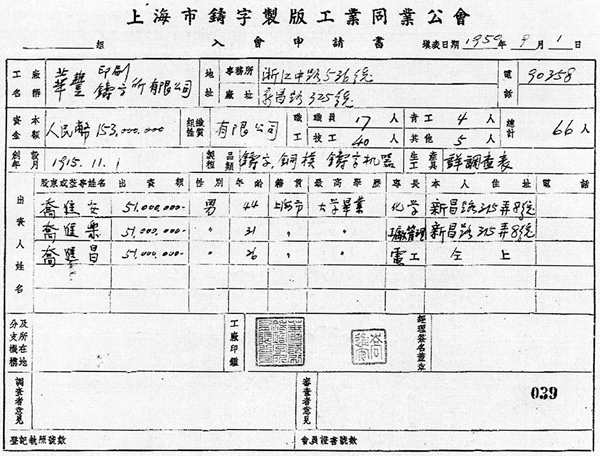 上海市鑄字製版工業同業公會
組 入會申請書 填表日期 1950年9月1日
工廠名稱 華豐印刷鑄字所有限公司 地址 事務所 浙江中路536號 電話 90358
廠址 新昌路325號
資本金額 人民幣153,000,000 組織性質 有限公司 職員 職員 17人 青工 4人 總計 66人
工 技工 40人 其他 5人
創設年月 1915.11.1 製品種類 鑄字 銅模 鑄字机器 生產工具 詳調查表
出資人姓名 股東或董事姓名 出資額 性別 年齡 籍貫 最高學歷 專長 本人住址 電話
喬進安 51,000,000- 男 44 上海市 大学畢業 化学 新昌路325弄8號
喬進業 51,000,000- 〃 31 〃 〃 新昌路325弄8號
喬進昌 51,000,000- 〃 26 〃 〃 電工 仝上
分支機構及所在地 工廠印鑑 經理簽名蓋章
調查者意見 審查者意見 039
登記執照號數 會員證書號數